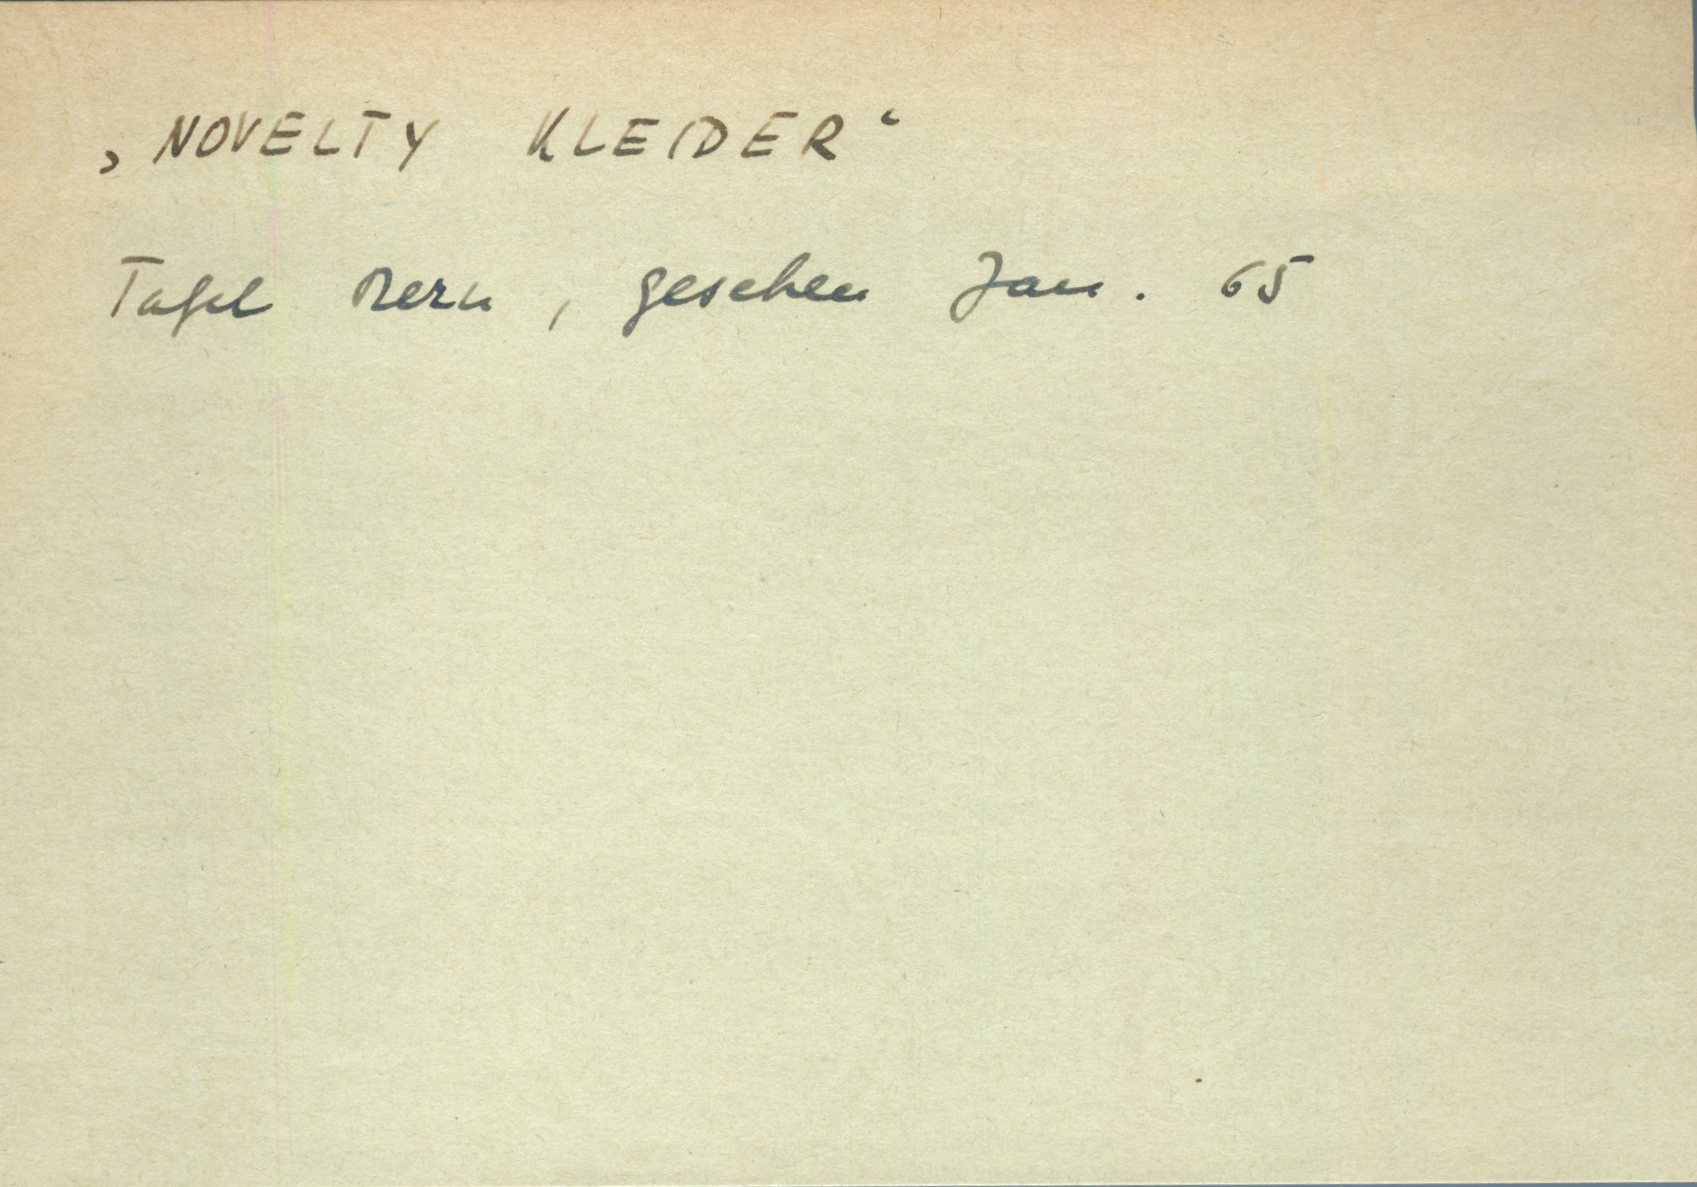 ‚NOVELTY KLEIDER‘
Tafel Bern, gesehen Jan. 65